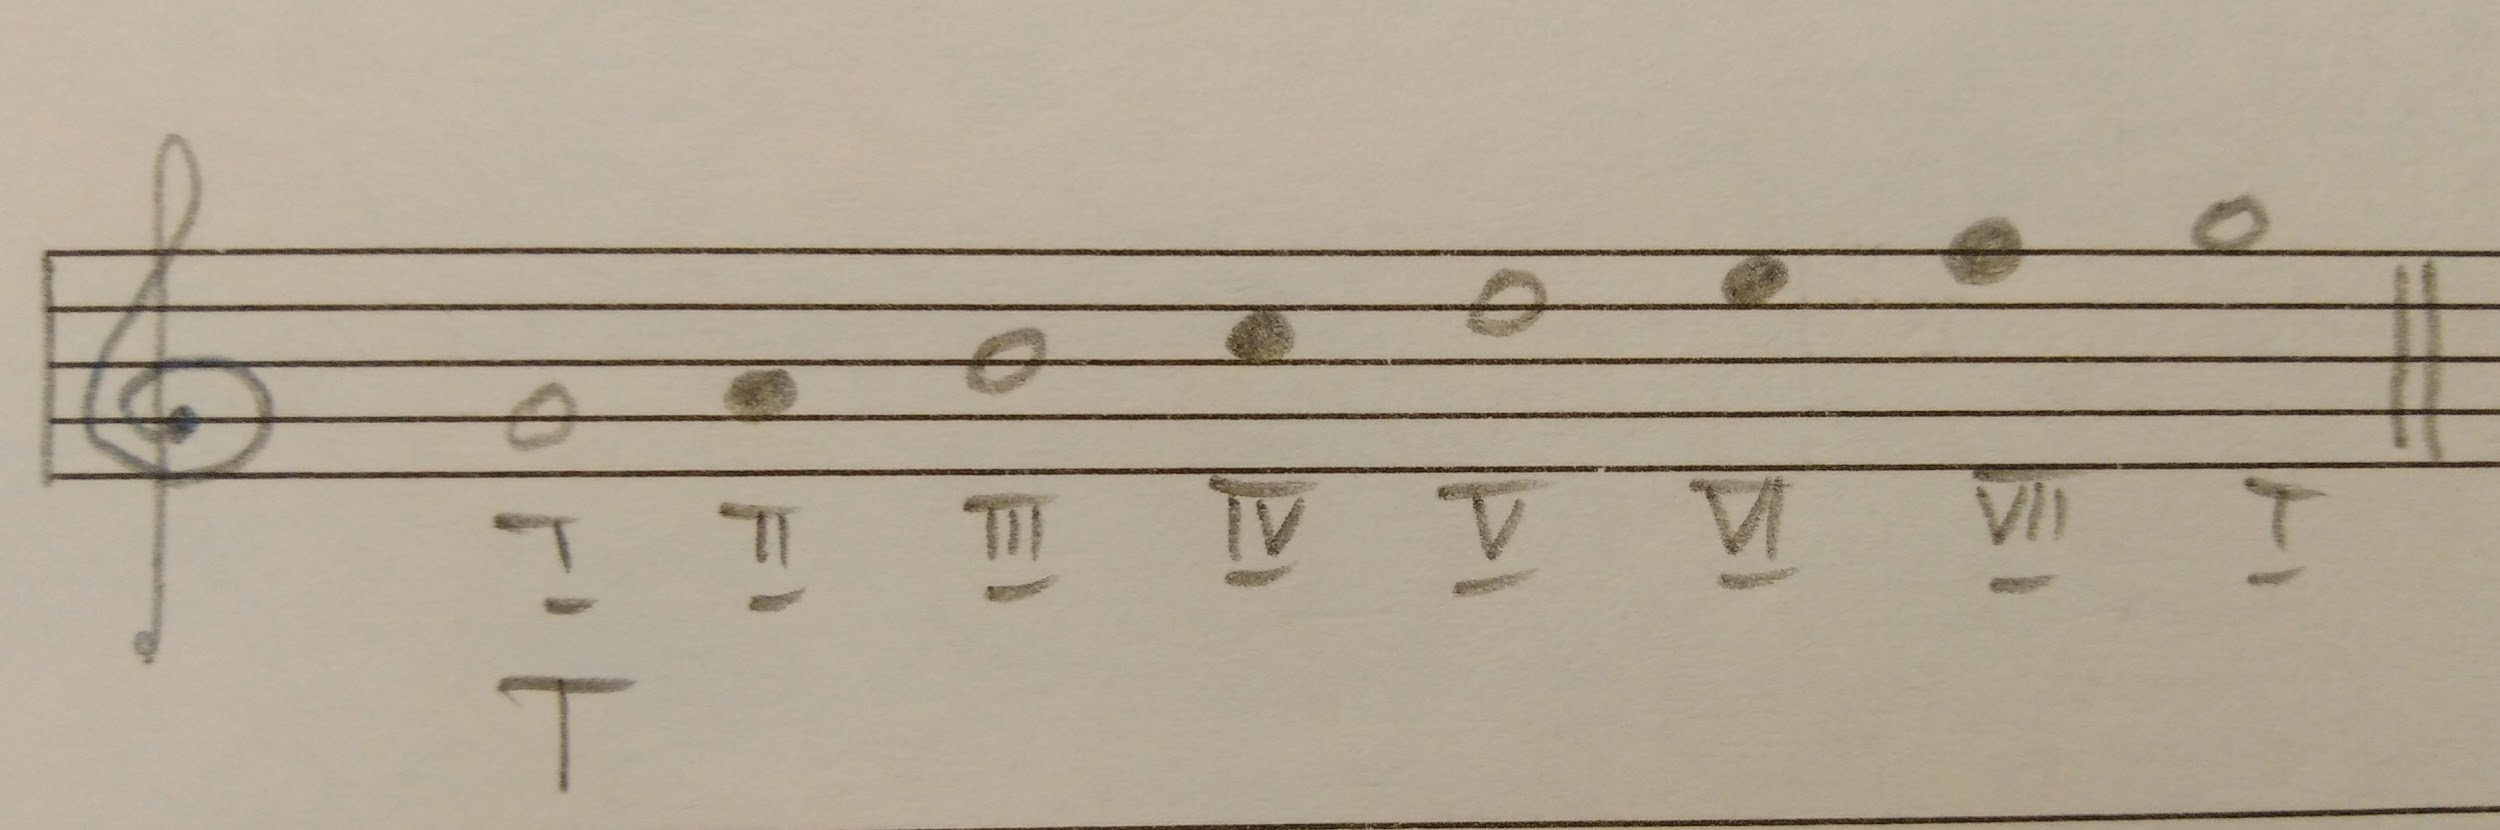 I II III IV V VI VII I
T